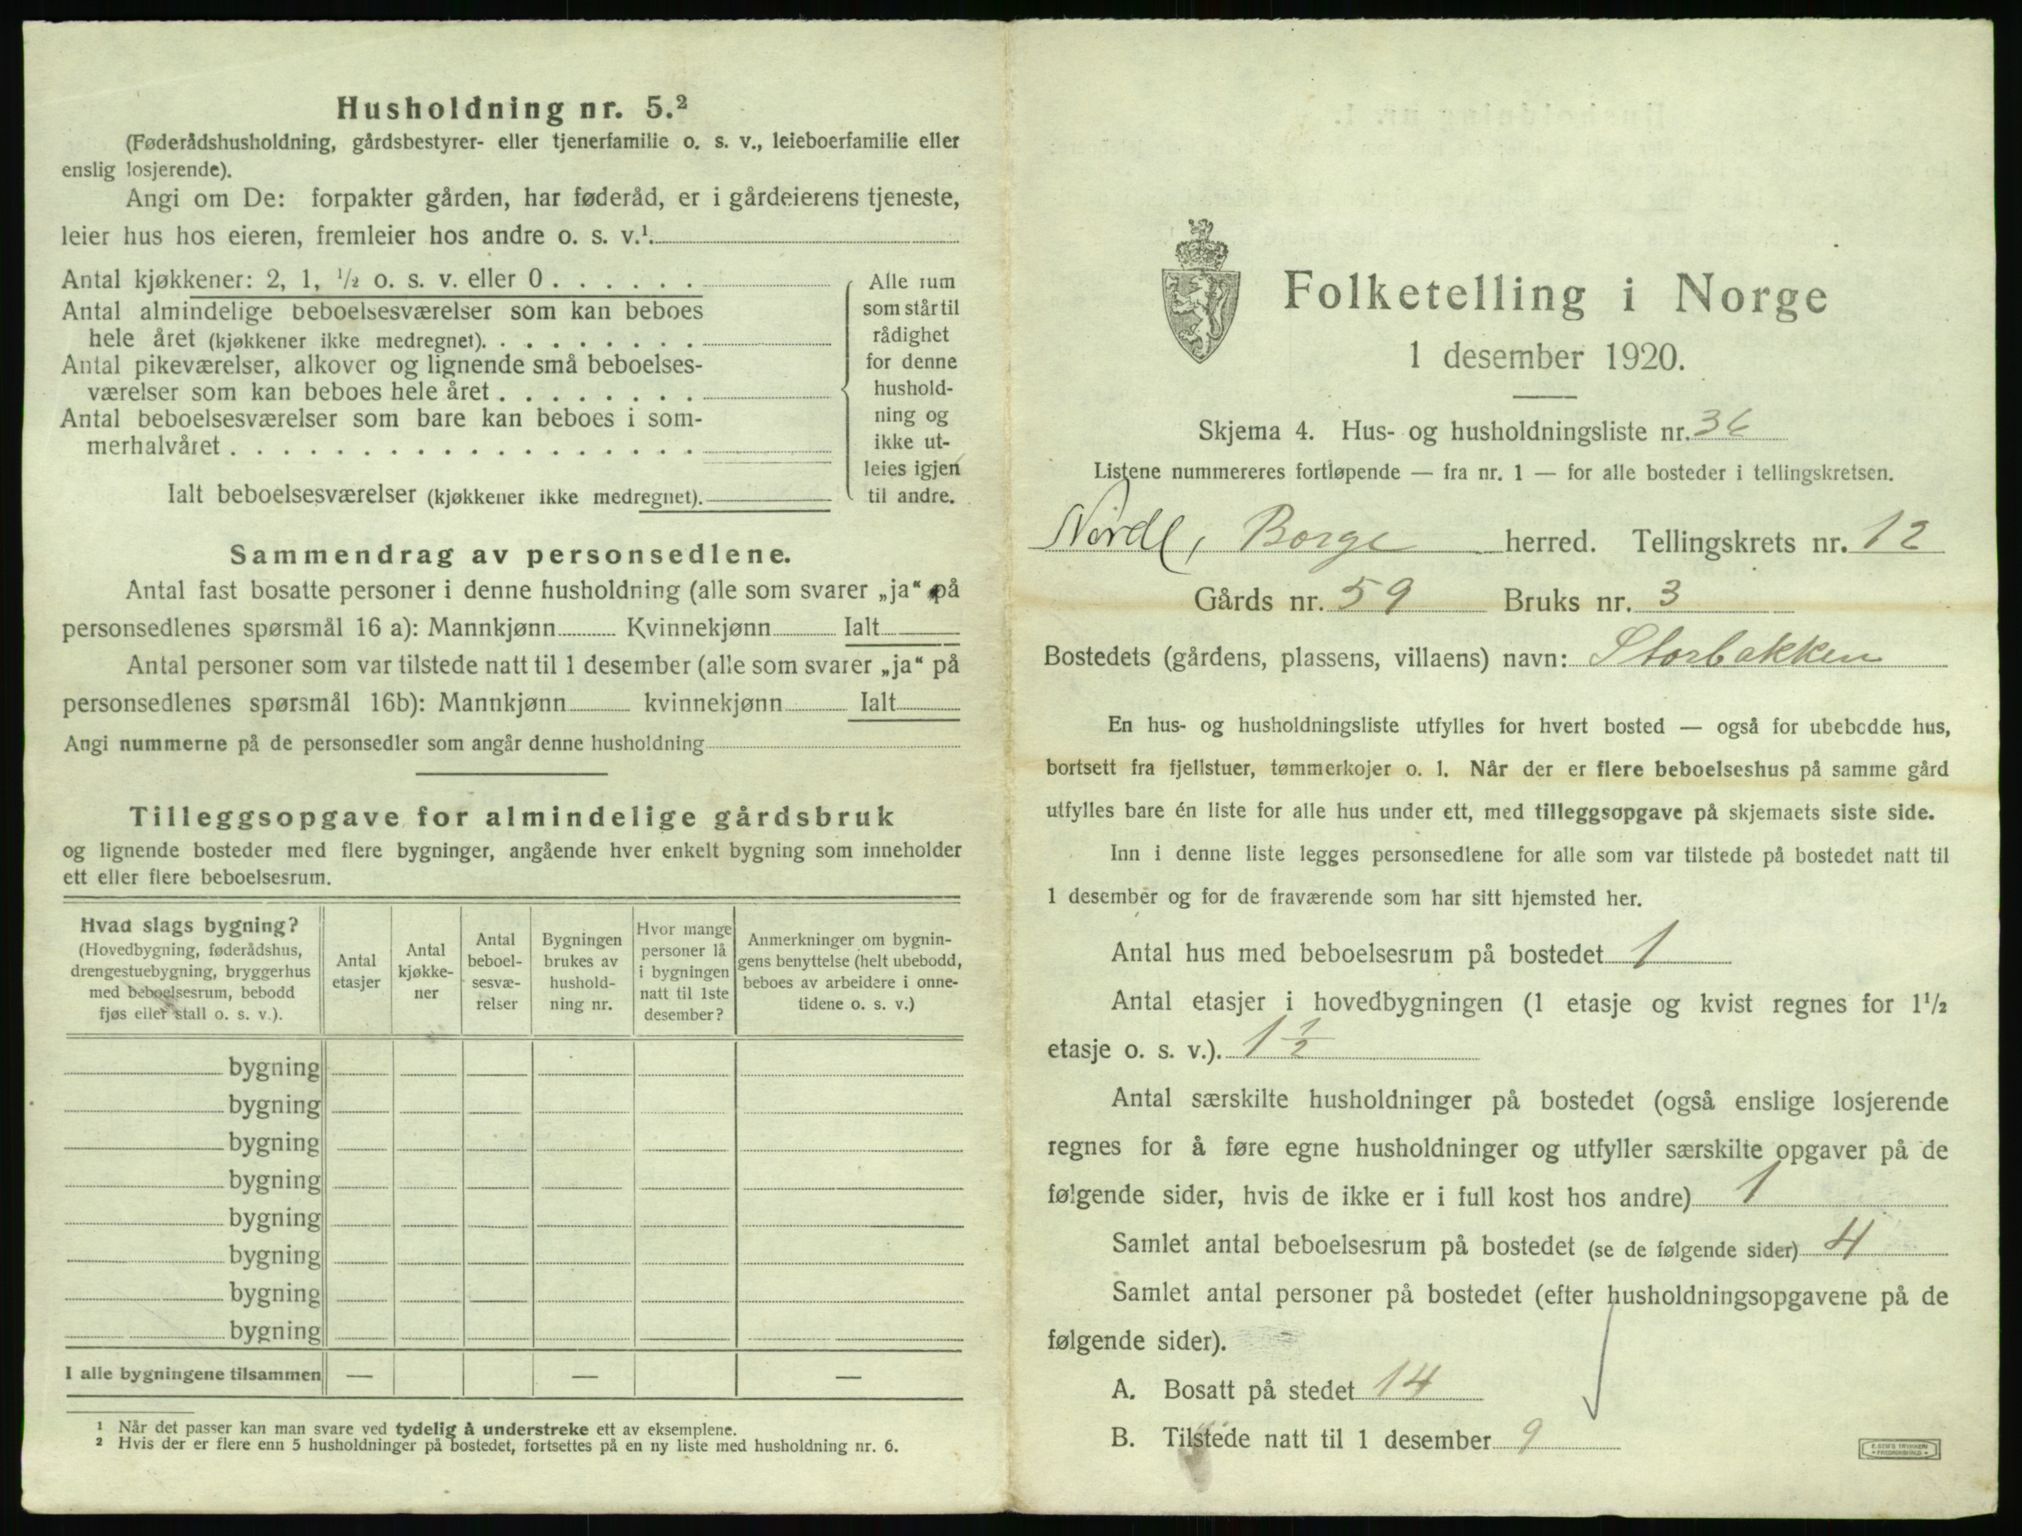 Husholdning nr. 5.²
(Føderådshusholdning, gårdsbestyrer- eller tjenerfamilie o. s. v., leieboerfamilie eller
enslig losjerende).
Angi om De: forpakter gården, har føderåd, er i gårdeierens tjeneste,
leier hus hos eieren, fremleier hos andre o. s. v.¹
Antal kjøkkener: 2, 1, ½ o. s. v. eller 0 . . . . . .
Antal almindelige beboelsesværelser som kan beboes
hele året (kjøkkener ikke medregnet). . . . . . . . .
Antal pikeværelser, alkover og lignende små beboelses-
værelser som kan beboes hele året . . . . . . . .
Antal beboelsesværelser som bare kan beboes i som-
merhalvåret . . . . . . . . . . . . . . . . . .
Ialt beboelsesværelser (kjøkkener ikke medregnet).
Alle rum
som står til
rådighet
for denne
hushold-
ning og
ikke ut-
leies igjen
til andre.
Sammendrag av personsedlene.
Antal fast bosatte personer i denne husholdning (alle som svarer „ja“ på
personsedlenes spørsmål 16 a): Mannkjønn Kvinnekjønn Ialt
Antal personer som var tilstede natt til 1 desember (alle som svarer „ja“ på
personsedlenes spørsmål 16b): Mannkjønn kvinnekjønn Ialt
Angi nummerne på de personsedler som angår denne husholdning
Tilleggsopgave for almindelige gårdsbruk
og lignende bosteder med flere bygninger, angående hver enkelt bygning som inneholder
ett eller flere beboelsesrum.
Hvad slags bygning?
(Hovedbygning, føderådshus,
drengestuebygning, bryggerhus
med beboelsesrum, bebodd
fjøs eller stall o. s. v.).
Antal
etasjer
Antal
kjøkke-
ner
Antal
beboel-
sesvæ-
relser
Bygningen
brukes av
hushold-
ning nr.
Hvor mange
personer lå
i bygningen
natt til 1ste
desember?
Anmerkninger om bygnin-
gens benyttelse (helt ubebodd,
beboes av arbeidere i onne-
tidene o. s. v.)
bygning
bygning
bygning
bygning
bygning
bygning
bygning
bygning
I alle bygningene tilsammen — — —
¹ Når det passer kan man svare ved tydelig å understreke ett av eksemplene.
² Hvis der er flere enn 5 husholdninger på bostedet, fortsettes på en ny liste med husholdning nr. 6.
Folketelling i Norge
1 desember 1920.
Skjema 4. Hus- og husholdningsliste nr. 36
Listene nummereres fortløpende — fra nr. 1 — for alle bosteder i tellingskretsen.
Nordl, Borge herred. Tellingskrets nr. 12
Gårds nr. 59 Bruks nr. 3
Bostedets (gårdens, plassens, villaens) navn: Storbakken
En hus- og husholdningsliste utfylles for hvert bosted — også for ubebodde hus,
bortsett fra fjellstuer, tømmerkojer o. l. Når der er flere beboelseshus på samme gård
utfylles bare én liste for alle hus under ett, med tilleggsopgave på skjemaets siste side.
Inn i denne liste legges personsedlene for alle som var tilstede på bostedet natt til
1 desember og for de fraværende som har sitt hjemsted her.
Antal hus med beboelsesrum på bostedet 1
Antal etasjer i hovedbygningen (1 etasje og kvist regnes for 1½
etasje o. s. v.). 1½
Antal særskilte husholdninger på bostedet (også enslige losjerende
regnes for å føre egne husholdninger og utfyller særskilte opgaver på de
følgende sider, hvis de ikke er i full kost hos andre) 1
Samlet antal beboelsesrum på bostedet (se de følgende sider) 4
Samlet antal personer på bostedet (efter husholdningsopgavene på de
følgende sider).
A. Bosatt på stedet 14
B. Tilstede natt til 1 desember 9